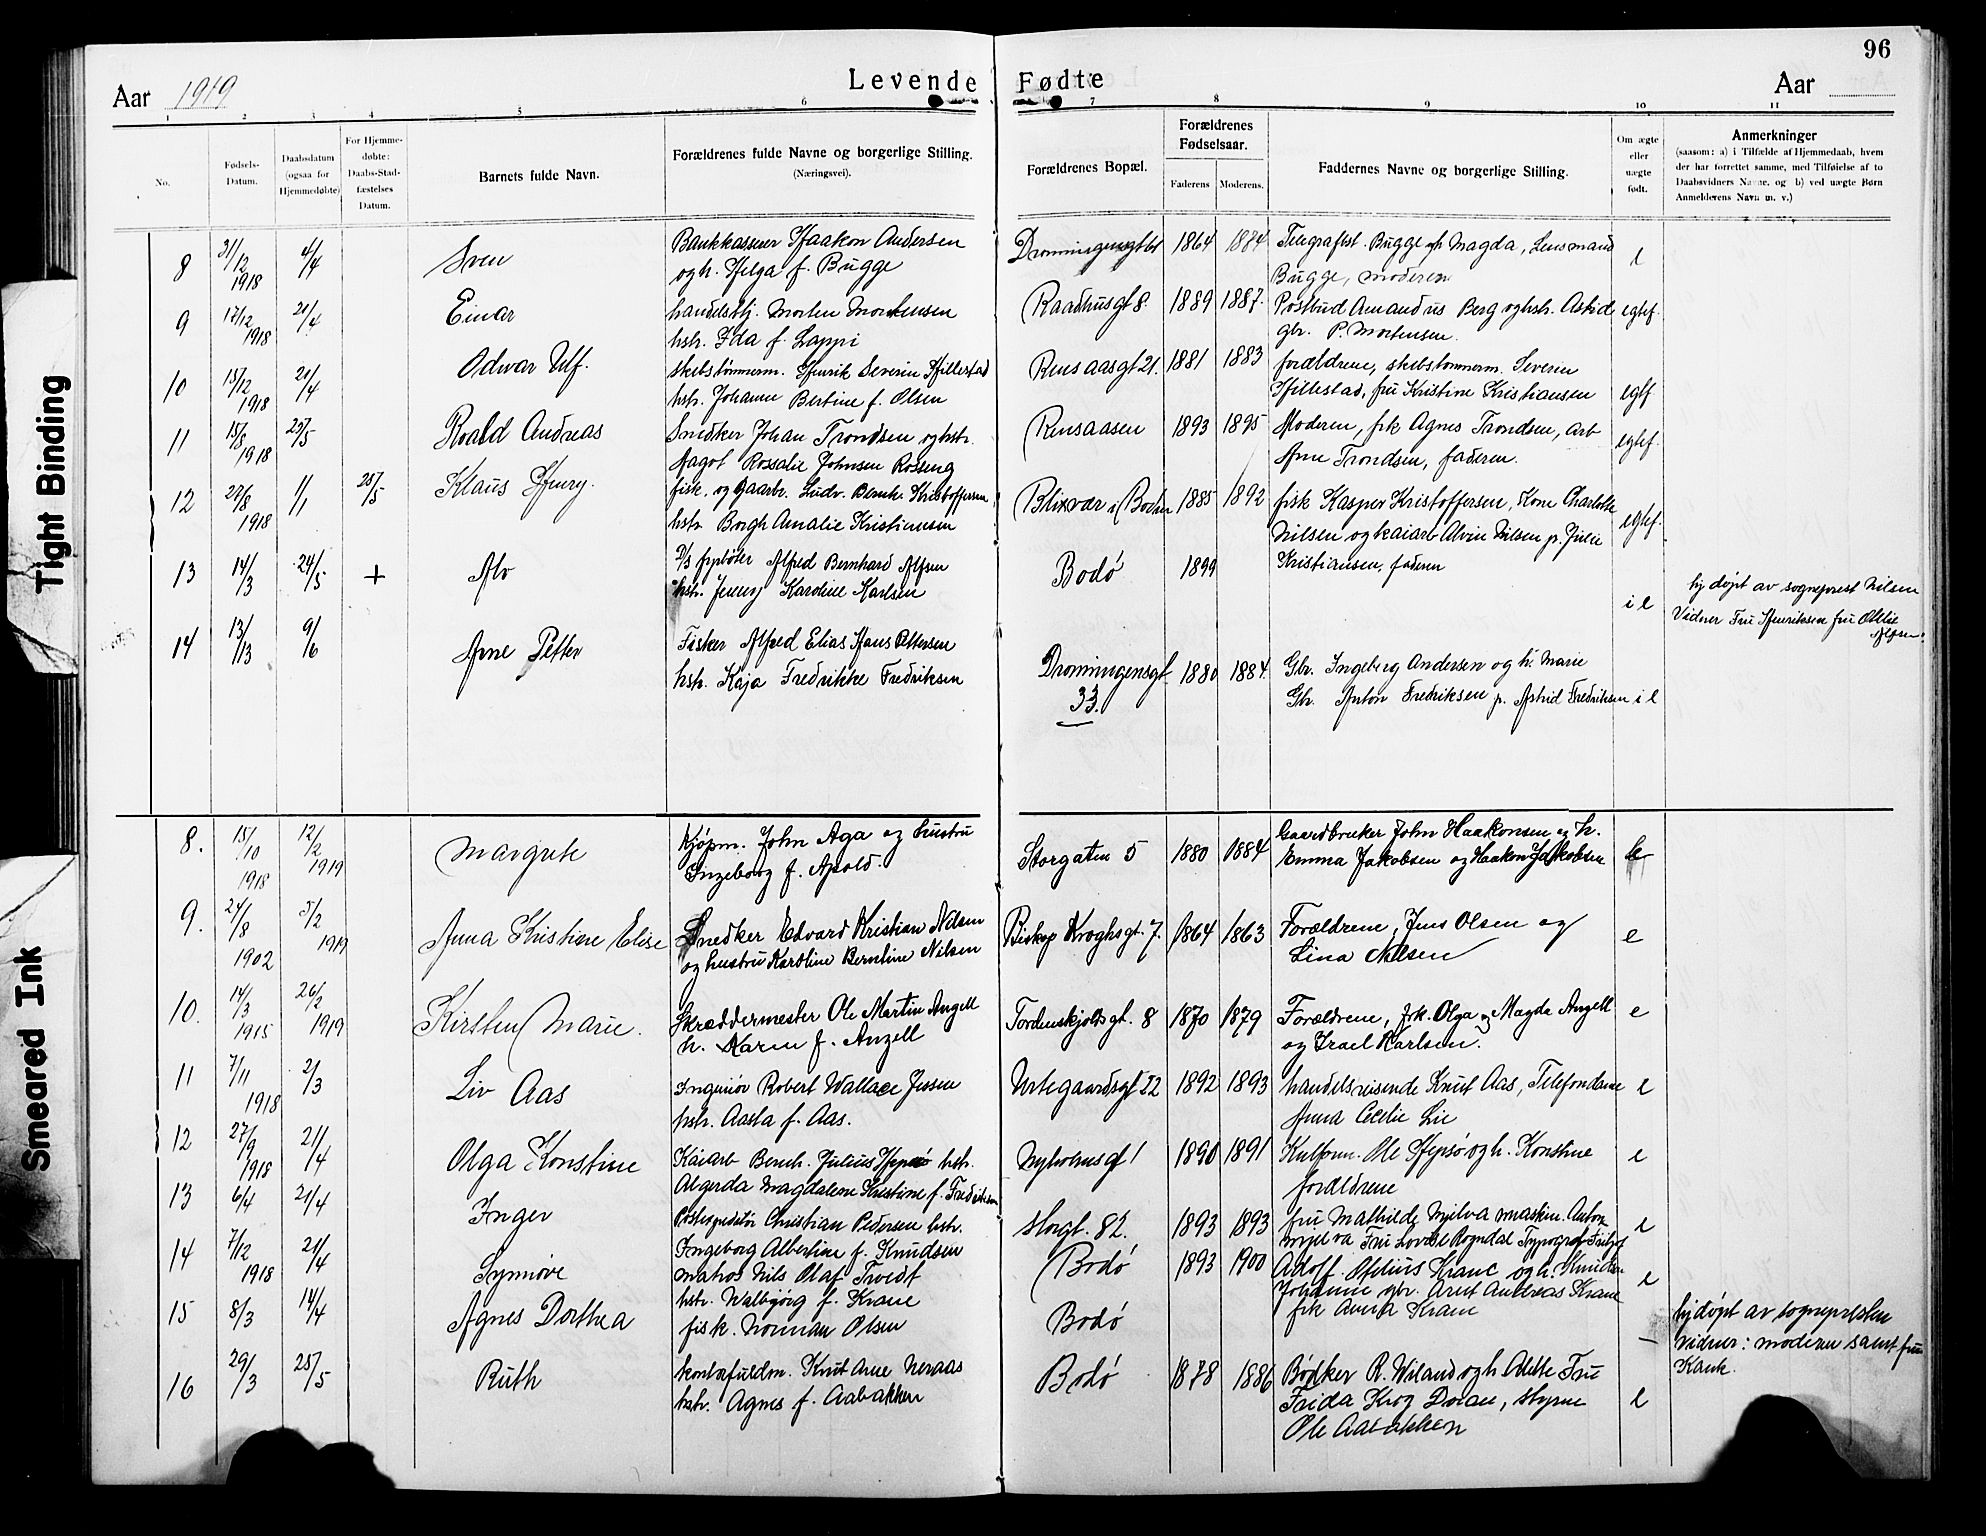 96
Levende Fødte
Aar 1919
Aar
1 2 3 4 5 6 7 8 9 10 11
No.
Fødsels-
Datum.
Daabsdatum
(ogsaa for
Hjemmedøbte)
For Hjemme-
døbte:
Daabs-Stad-
fæstelses
Datum.
Barnets fulde Navn.
Forældrenes fulde Navne og borgerlige Stilling.
(Næringsvei).
Forældrenes Bopæl.
Forældrenes
Fødselsaar.
Faderens Moderens.
Faddernes Navne og borgerlige Stilling.
Om ægte
eller
uægte
født.
Anmerkninger
(saasom: a) i Tilfælde af Hjemmedaab, hvem
der har forrettet samme, med Tilføielse af to
Daabsvidners Navne, og b) ved uægte Børn
Anmelderens Navn m. v.)
8 31/12 1918 4/4 Sven
Bankkasserer Haakon Andersen
og h. Helga f. Bugge
Dronningensgt 61 1864 1884
Telegrafist. Bugge p. Magda, Lensmand
Bugge, moderen
e
9 17/12 1918 21/4 Einar
handelsbtj. Morten Mortensen
hstr. Ida f. Lappi
Raadhusgt 8. 1889 1887.
Postbud Amandus Berg og hstr. Astrid
gbr. P. Mortensen.
egtef.
10 15/12 1918 21/4 Odvar Ulf.
skibstømmerm. Henrik Severin Hillestad
hstr. Johanne Bertine f. Olsen
Rensaasgt 21. 1881 1883
forældrene, skibstømmerm. Severin
Hillestad, fru Kristine Kristiansen
egtf
11 15/8 1918 29/5 Roald Andreas
Snedker Johan Trondsen og hstr.
Aagot Rossalie Johnsen Rosseng
Rensaasen 1893 1895
Moderen, frk Agnes Trondsen, arb
Arne Trondsen, faderen.
egtef.
12 28/8 1918 1/1 25/5 Klaus Henry.
fisk. og gaarbr. Ludv. Bernh. Kristoffersen
hstr. Borgh Amalie Kristiansen
Blixvær i Bodin 1885 1892
fisk Kasper Kristoffersen, Kone Charlotte
Nilsen og kaiarb Alvin Nilsen p. Julie
Kristiansen, faderen
egtef.
13 14/3 24/5 + Alv
D/s fyrbøter Alfred Bernhard Alfsen
hstr. Jenny Karoline Karlsen
Bodö 1899
i e
hj døpt av sogneprest Nilsen
Vidner Fru Henriksen fru Ollie
Alfsen.
14 13/13 9/6 Arne Petter
Fisker Alfred Elias Hans Pettersen
hstr. Kaja Fredrikke Fredriksen
Dronningensgt.
33.
1880 1884.
Gbr. Ingeberg Andersen og h. Marie
Gbr. Anton Fredriksen p. Astrid Fredriksen
i e
8. 15/10 1918 12/2 1919 Margrete
Kjøpm. John Aga og hustru
Ingeborg f. Apold.
Storgaten 5 1880 1884
Gaardbruker John Haakonsen og h.
Emma Jakobsen og Haakon Jakobsen
e
9. 24/8 1902 5/2 1919 Anna Kristine Elise
Snedker Edvard Kristian Nilsen
og hustru Karoline Berntine Nilsen
Biskop Kroghsgt. 7. 1864 1863
Forældrene, Jens Olsen og
Lina Nilsen
e
10. 14/3 1915 26/2 1919 Kirsten Marie.
Skræddermester Ole Martin Angell
h. Karen f. Angell
Tordenskjoldsgt. 8 1870 1879
Forældrene, frk. Olga og Magda Angell
og Israel Karlsen.
e
11 7/11 1918 2/3 Liv Aas
Ingeniør Robert Wallace Jessen
hstr. Aasta f. Aas.
Urtegaardsgt 22 1892 1893
handelsreisende Knut Aas, Telefondame
Anna Cecelie Lie
e
12 27/9 1918 21/4 Olga Konstine
Kaiarb Bernh. Julius Hepsö hstr.
Algerda Magdalene Kristine f. Fredriksen
Nyholmsgt 1 1890 1891
Kulform. Ole Hepsö og h. Konstine
forældrene
e
13 6/4 21/4 Inger
Postexpeditör Christian Pedersen hstr.
Ingeborg Albertine f. Knudsen
Storgt. 82. 1893 1893
fru Mathilde Mjelva maskin. Anton
Mjelva Fru Lovise Rogndal Typograf
e
14 7/12 1918 21/4 Synnöve
matros Nils Olaf Tvedt
hstr. Walbjörg f. Krane
Bodö 1893 1900
Adolf. Ofelius Krane og h.
Johanne gbr. Arnt Andreas Krane
frk Anna Krane
e
15 8/3 14/4 Agnes Dorthea
fisk. Norman Olsen
Bodö
—
hjdøpt av sognepresten
vidner: moderen samt fru
Hank.
16 29/3 25/5 Ruth
kontorfuldm. Knut Arne Neraas
hstr. Agnes f. Aabakken
Bodö 1878 1886
Bødker R. Wiland og h Adelte Fru
Faida Krog Doian, styrm
Ole Aabakken
e
Tight Binding
Smeared Ink